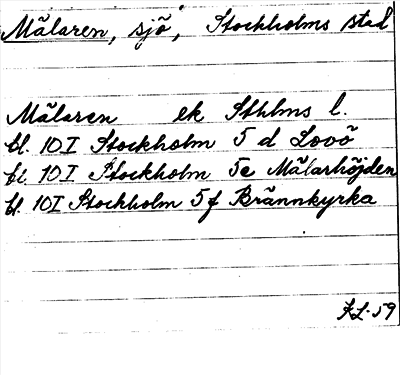 Mälaren, sjö, Stockholms stad
Mälaren ek Sthlms l.
bl. 10I Stockholm 5 d Lovö
bl. 10I Stockholm 5e Mälarhöjden
bl. 10I Stockholm 5f Brännkyrka
KL-59